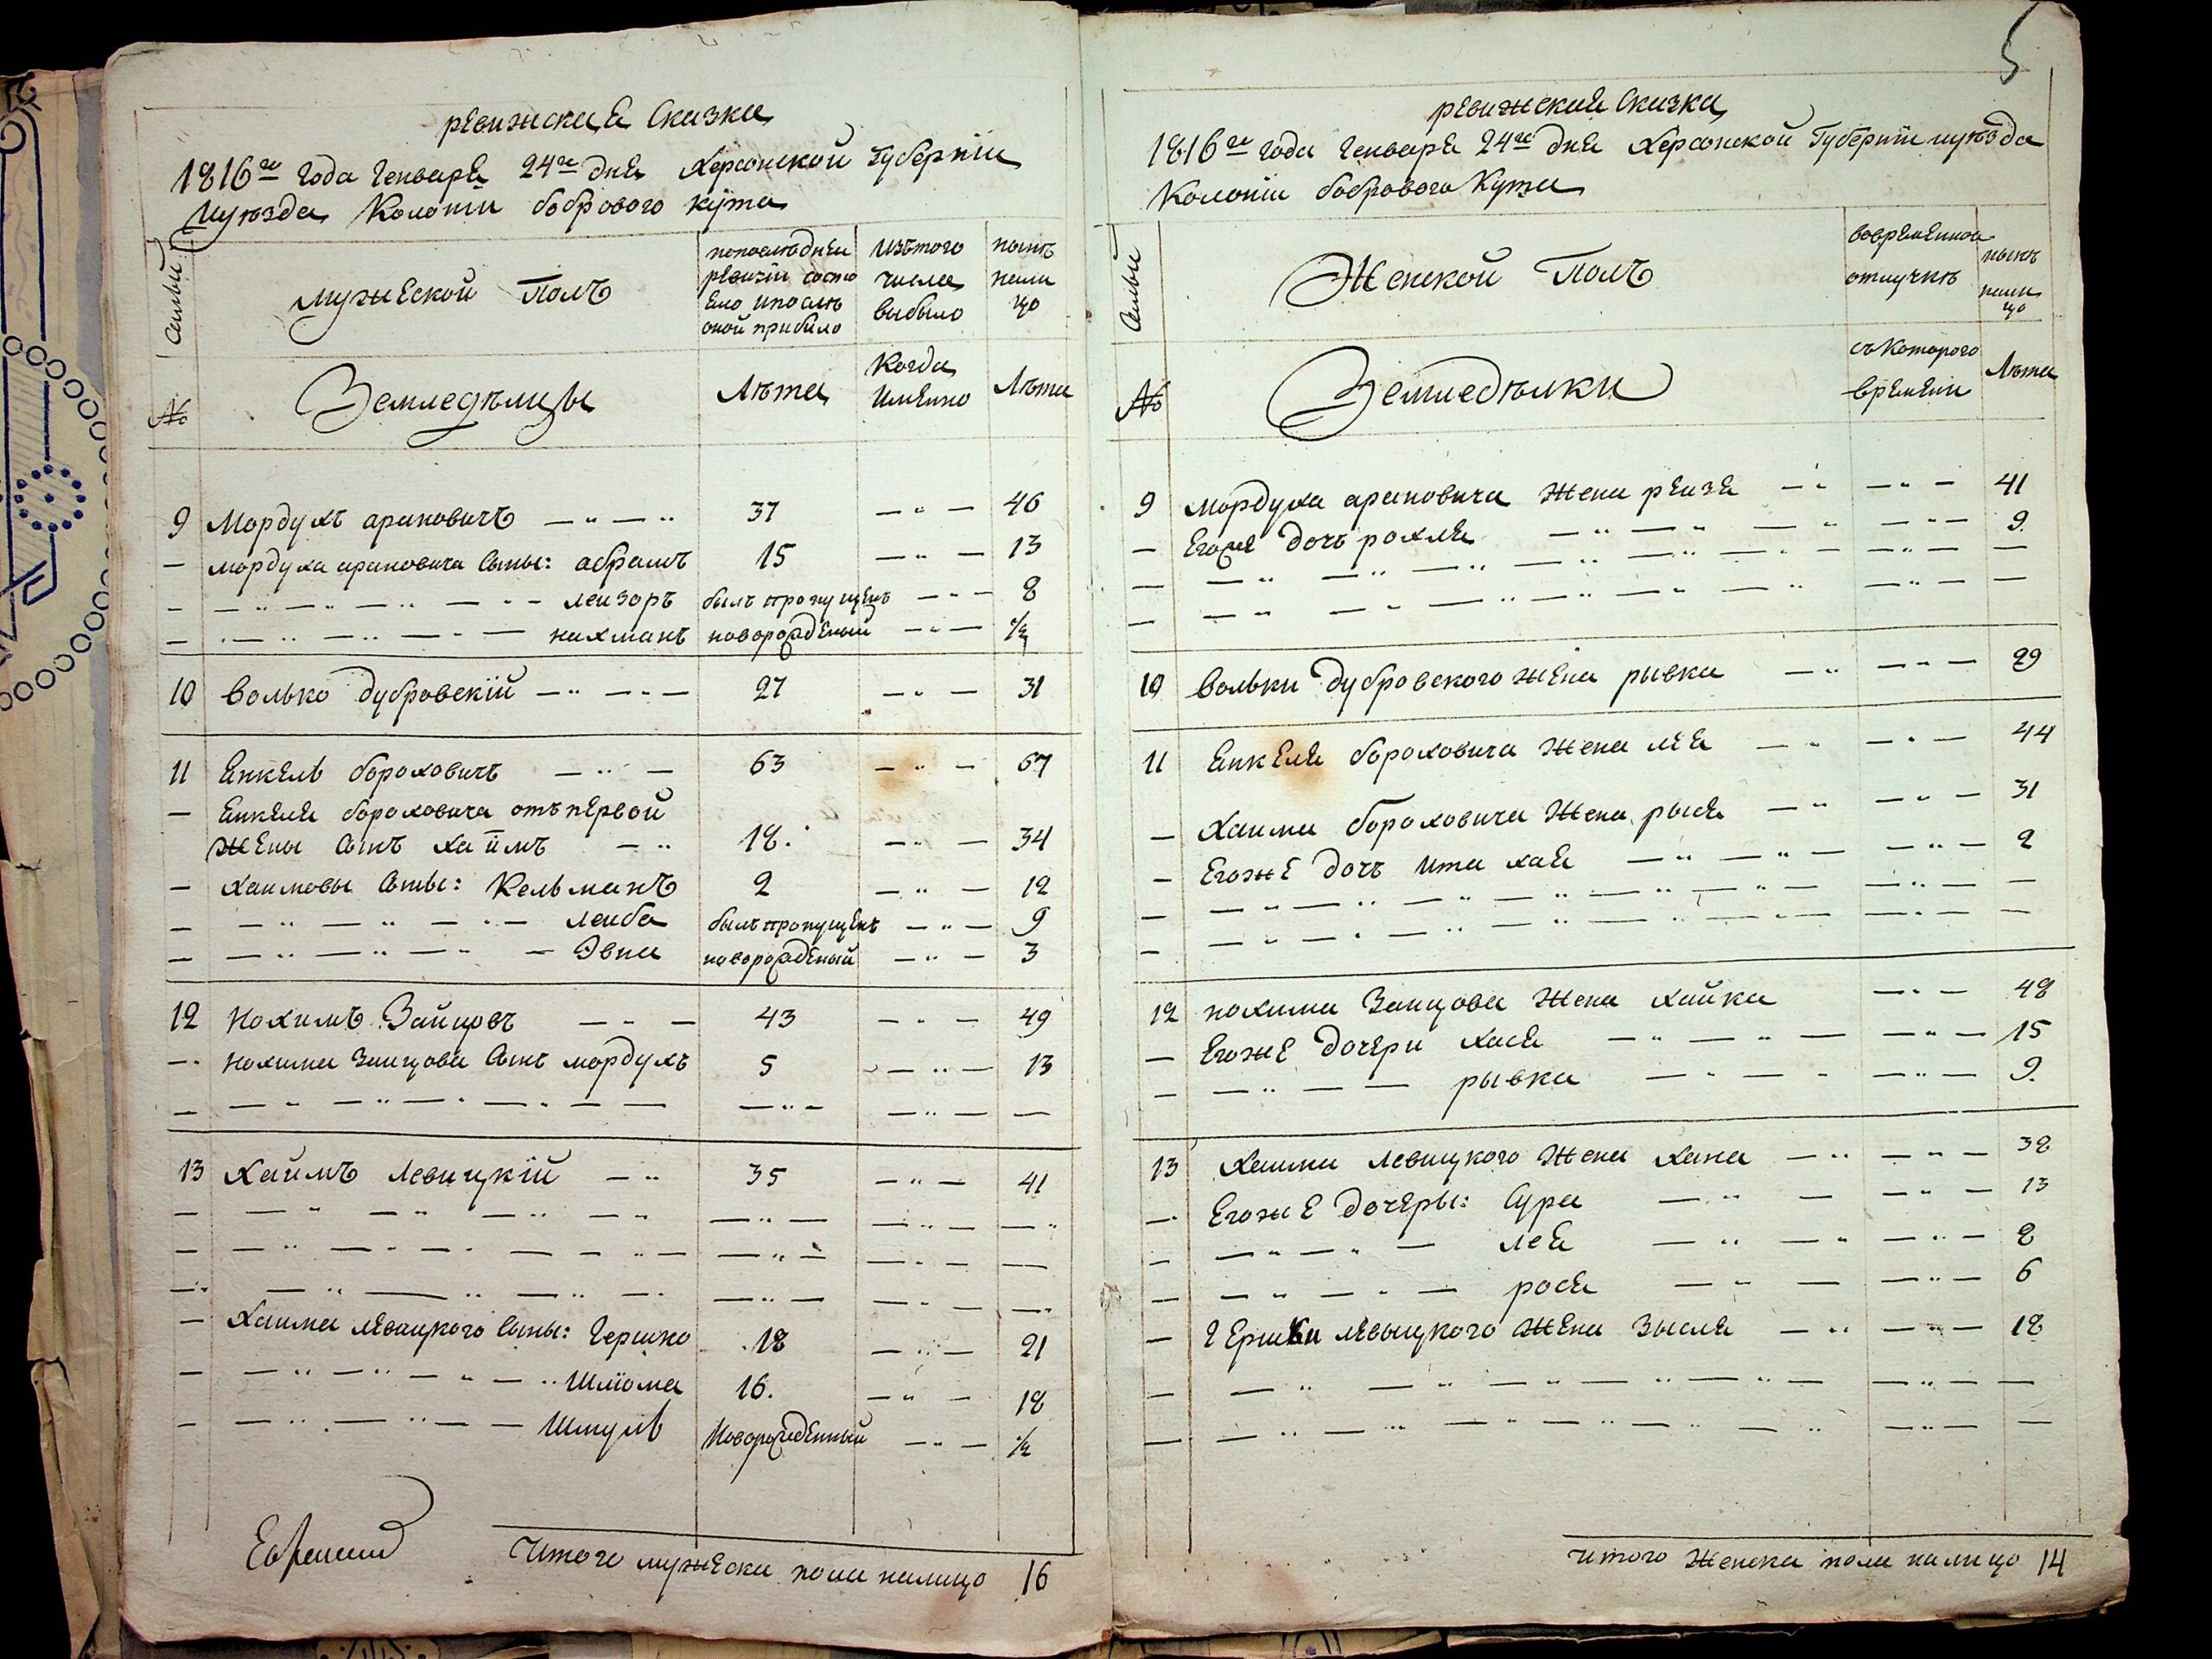 ревижская Сказка
1816го года Генваря 24го дня Херсонской Губернïи
иуезда Колонïи бобрового кута
Семьи
мужеской Полъ
попоследнеи ревизiи состо яло ипосле оной прибыло
изътого числа выбыло
ныне нали цо
№
Земледелцы
Лета
Когда имянно
Лета
9 Мордухъ ароновичъ — " — " 37 — " — 46
— мордуха ароновича Сыны: абрамъ 15 — " — 13
— — " — " — " — " — леизоръ былъ пропущенъ — " — 8
— — " — " — " — нахманъ новорожденый — " — ½
10 волько дубровскïй — " — " — 27 — " — 31
11 Янкель бороховичъ — " — 63 — " — 67
— Янкеля бороховича отъ первой
жены Сынъ хаïмъ — " 18. — " — 34
— хаимовы Сыны: Кельманъ 2 — " — 12
— — " — " — " — леиба былъ пропущенъ — " — 9
— — " — " — " — Эвна новорожденый — " — 3
12 Нохимъ Зайцовъ — " — 43 — " — 49
— Нохима Заицова Сынъ мордухъ 5 — " — 13
— — " — " — " — " — — — " — — " — —
13 Хаимъ Левицкïй — " 35 — " — 41
— — " — " — " — " — " — — " — — "
— — " — " — " — — " — — " — — " — —
— — " — " — " — " — " — — " — — "
— Хаима левицкого Сыны: Гершко 18 — " — 21
— — " — " — " — " Шлïома 16. — " — 18
— — " — " — — Шмуль Новорожденный — " — ½
Итого мужеска пола налицо 16
5
ревижская Сказка
1816го года Генваря 24го дня Херсонской Губернïи иуезда
Колонïи бобрового Кута
Семьи
Женской Полъ
вовременои отлучке
ныне нали цо
№
Земледелки
съкоторого времени
Лета
9 мордуха ароновича жена реизя — " — " — 41
— Егоже дочь рохля — " — " — " — " — 9.
— — " — " — " — " — " — — " — —
— — " — " — " — " — " — " — —
10 вольки дубровского жена рывка — " — " — 29
11 Янкеля бороховича жена лея — " — " — 44
— Хаима бороховича жена рыся — " — " — 31
— Егоже дочь ита хая — " — " — — " — 2
— — " — " — " — " — " — — " — —
— — " — " — " — " — " — — " — —
12 нохима Заицова жена хайка — " — 48
— Егоже дочери хася — " — " — — " — 15
— — " — — рывка — " — " — " — 9.
13 Хаима левицкого жена хана — " — " — 38
— Егоже дочеры: Сура — " — — " — 13
— — " — " — лея — " — " — " — 8
— — " — " — рося — " — — " — 6
— Гершки левыцкого жена зысля — " — " — 18
— — " — " — " — " — " — — " — —
— — " — " — " — " — — " — " — —
итого женска пола налицо 14